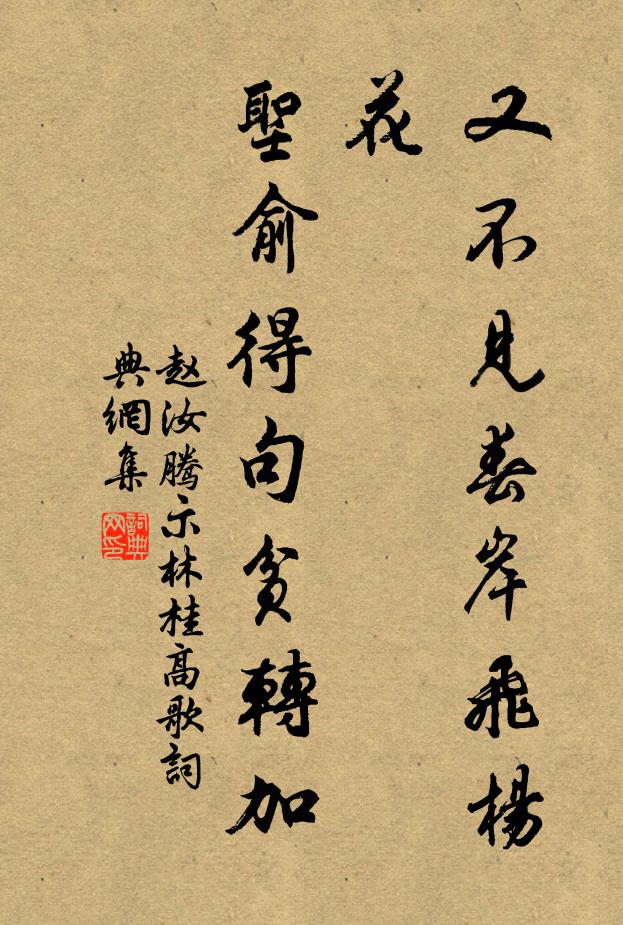 又不見春岸飛楊
花
聖俞得句貧轉加
赵汝腾示林桂高歌詞
典網集
詞典
网印